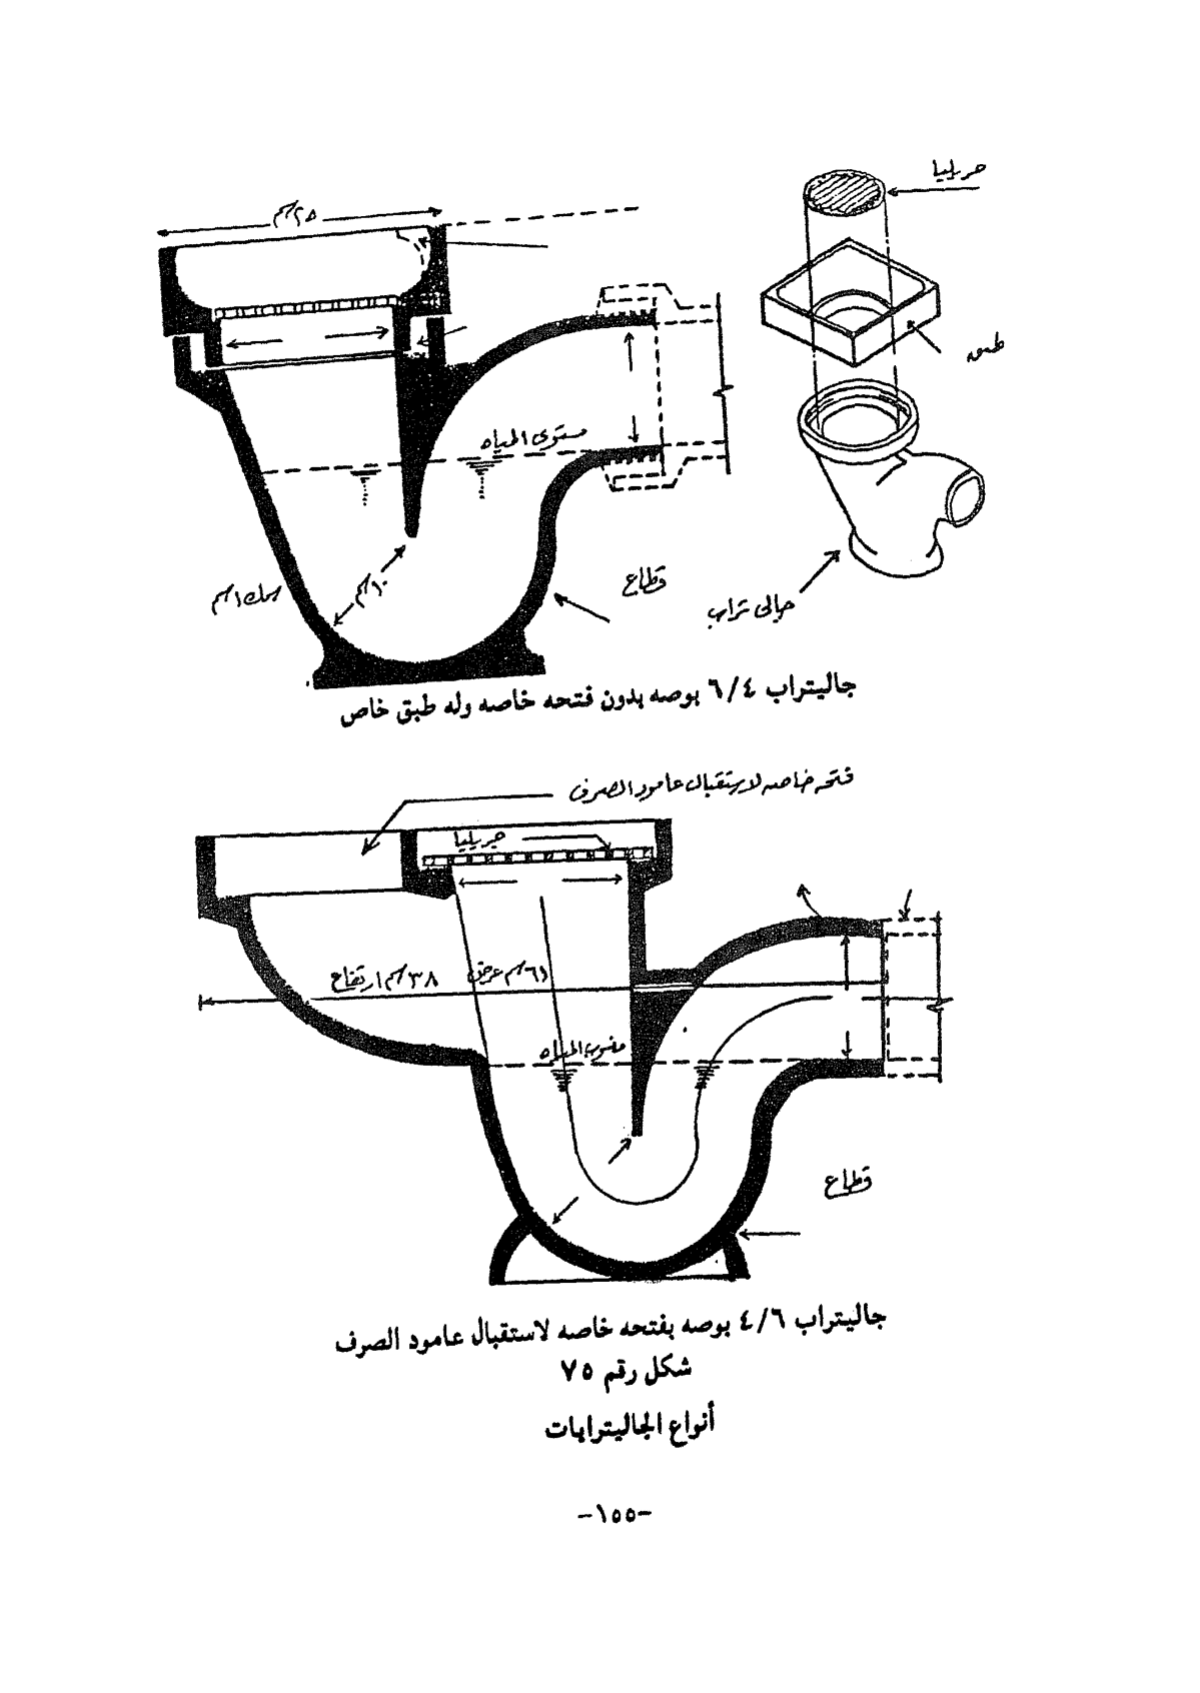 جريليا
٢٥سم
طبق
مستوى المياه
قطاع
١٠سم
سمك ١سم
جالى تراب
جاليتراب ٦/٤ بوصه بدون فتحه خاصه وله طبق خاص
فتحه خاصه لاستقبال عامود الصرف
جريليا
٣٨سم ارتفاع
عرض
منسوب المياه
قطاع
جاليتراب ٤/٦ بوصه بفتحه خاصه لاستقبال عامود الصرف
شكل رقم ٧٥
أنواع الجاليترابات
-١٥٥-